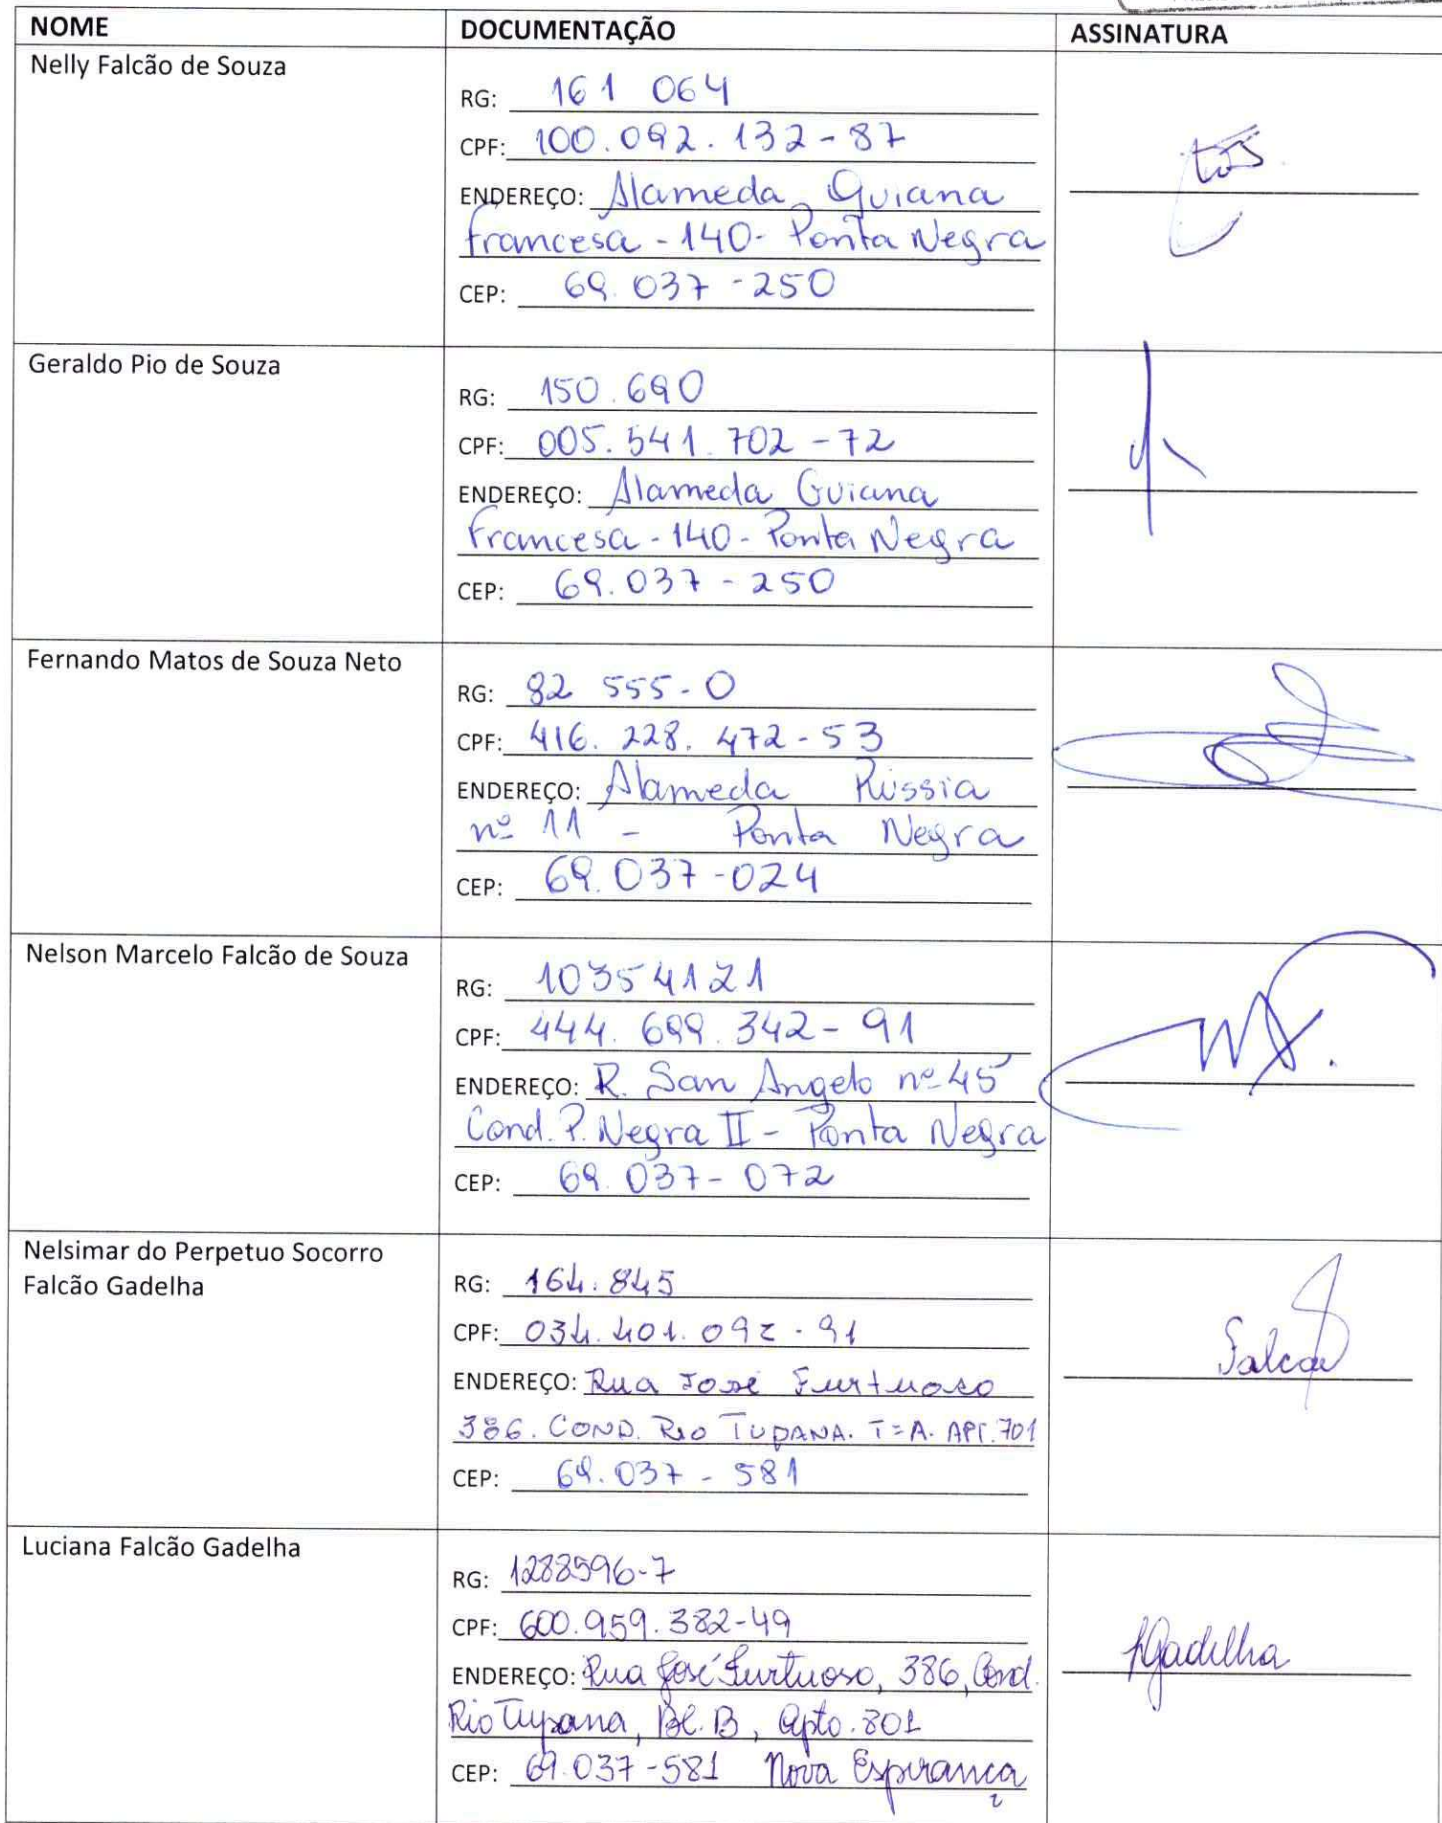 NOME DOCUMENTAÇÃO ASSINATURA
Nelly Falcão de Souza
RG: 161 064
CPF: 100.092.132-87
ENDEREÇO: Alameda Guiana
Francesa - 140 - Ponta Negra
CEP: 69.037-250
Geraldo Pio de Souza
RG: 150.690
CPF: 005.541.702-72
ENDEREÇO: Alameda Guiana
Francesa - 140 - Ponta Negra
CEP: 69.037-250
Fernando Matos de Souza Neto
RG: 82 555-0
CPF: 416.228.472-53
ENDEREÇO: Alameda Rússia
nº 11 - Ponta Negra
CEP: 69.037-024
Nelson Marcelo Falcão de Souza
RG: 10354121
CPF: 444.699.342-91
ENDEREÇO: R. San Angelo nº 45
Cond. P. Negra II - Ponta Negra
CEP: 69.037-072
Nelsimar do Perpetuo Socorro
Falcão Gadelha
RG: 164.845
CPF: 034.401.092-91
ENDEREÇO: Rua José Furtuoso
386. COND. RIO TUPANA. T=A. APT. 701
CEP: 69.037-581
Falcão
Luciana Falcão Gadelha
RG: 1288596-7
CPF: 600.959.382-49
ENDEREÇO: Rua José Furtuoso, 386, Cond.
Rio Tupana, Bl. B, apto. 801
CEP: 69.037-581 Nova Esperança
LGadelha